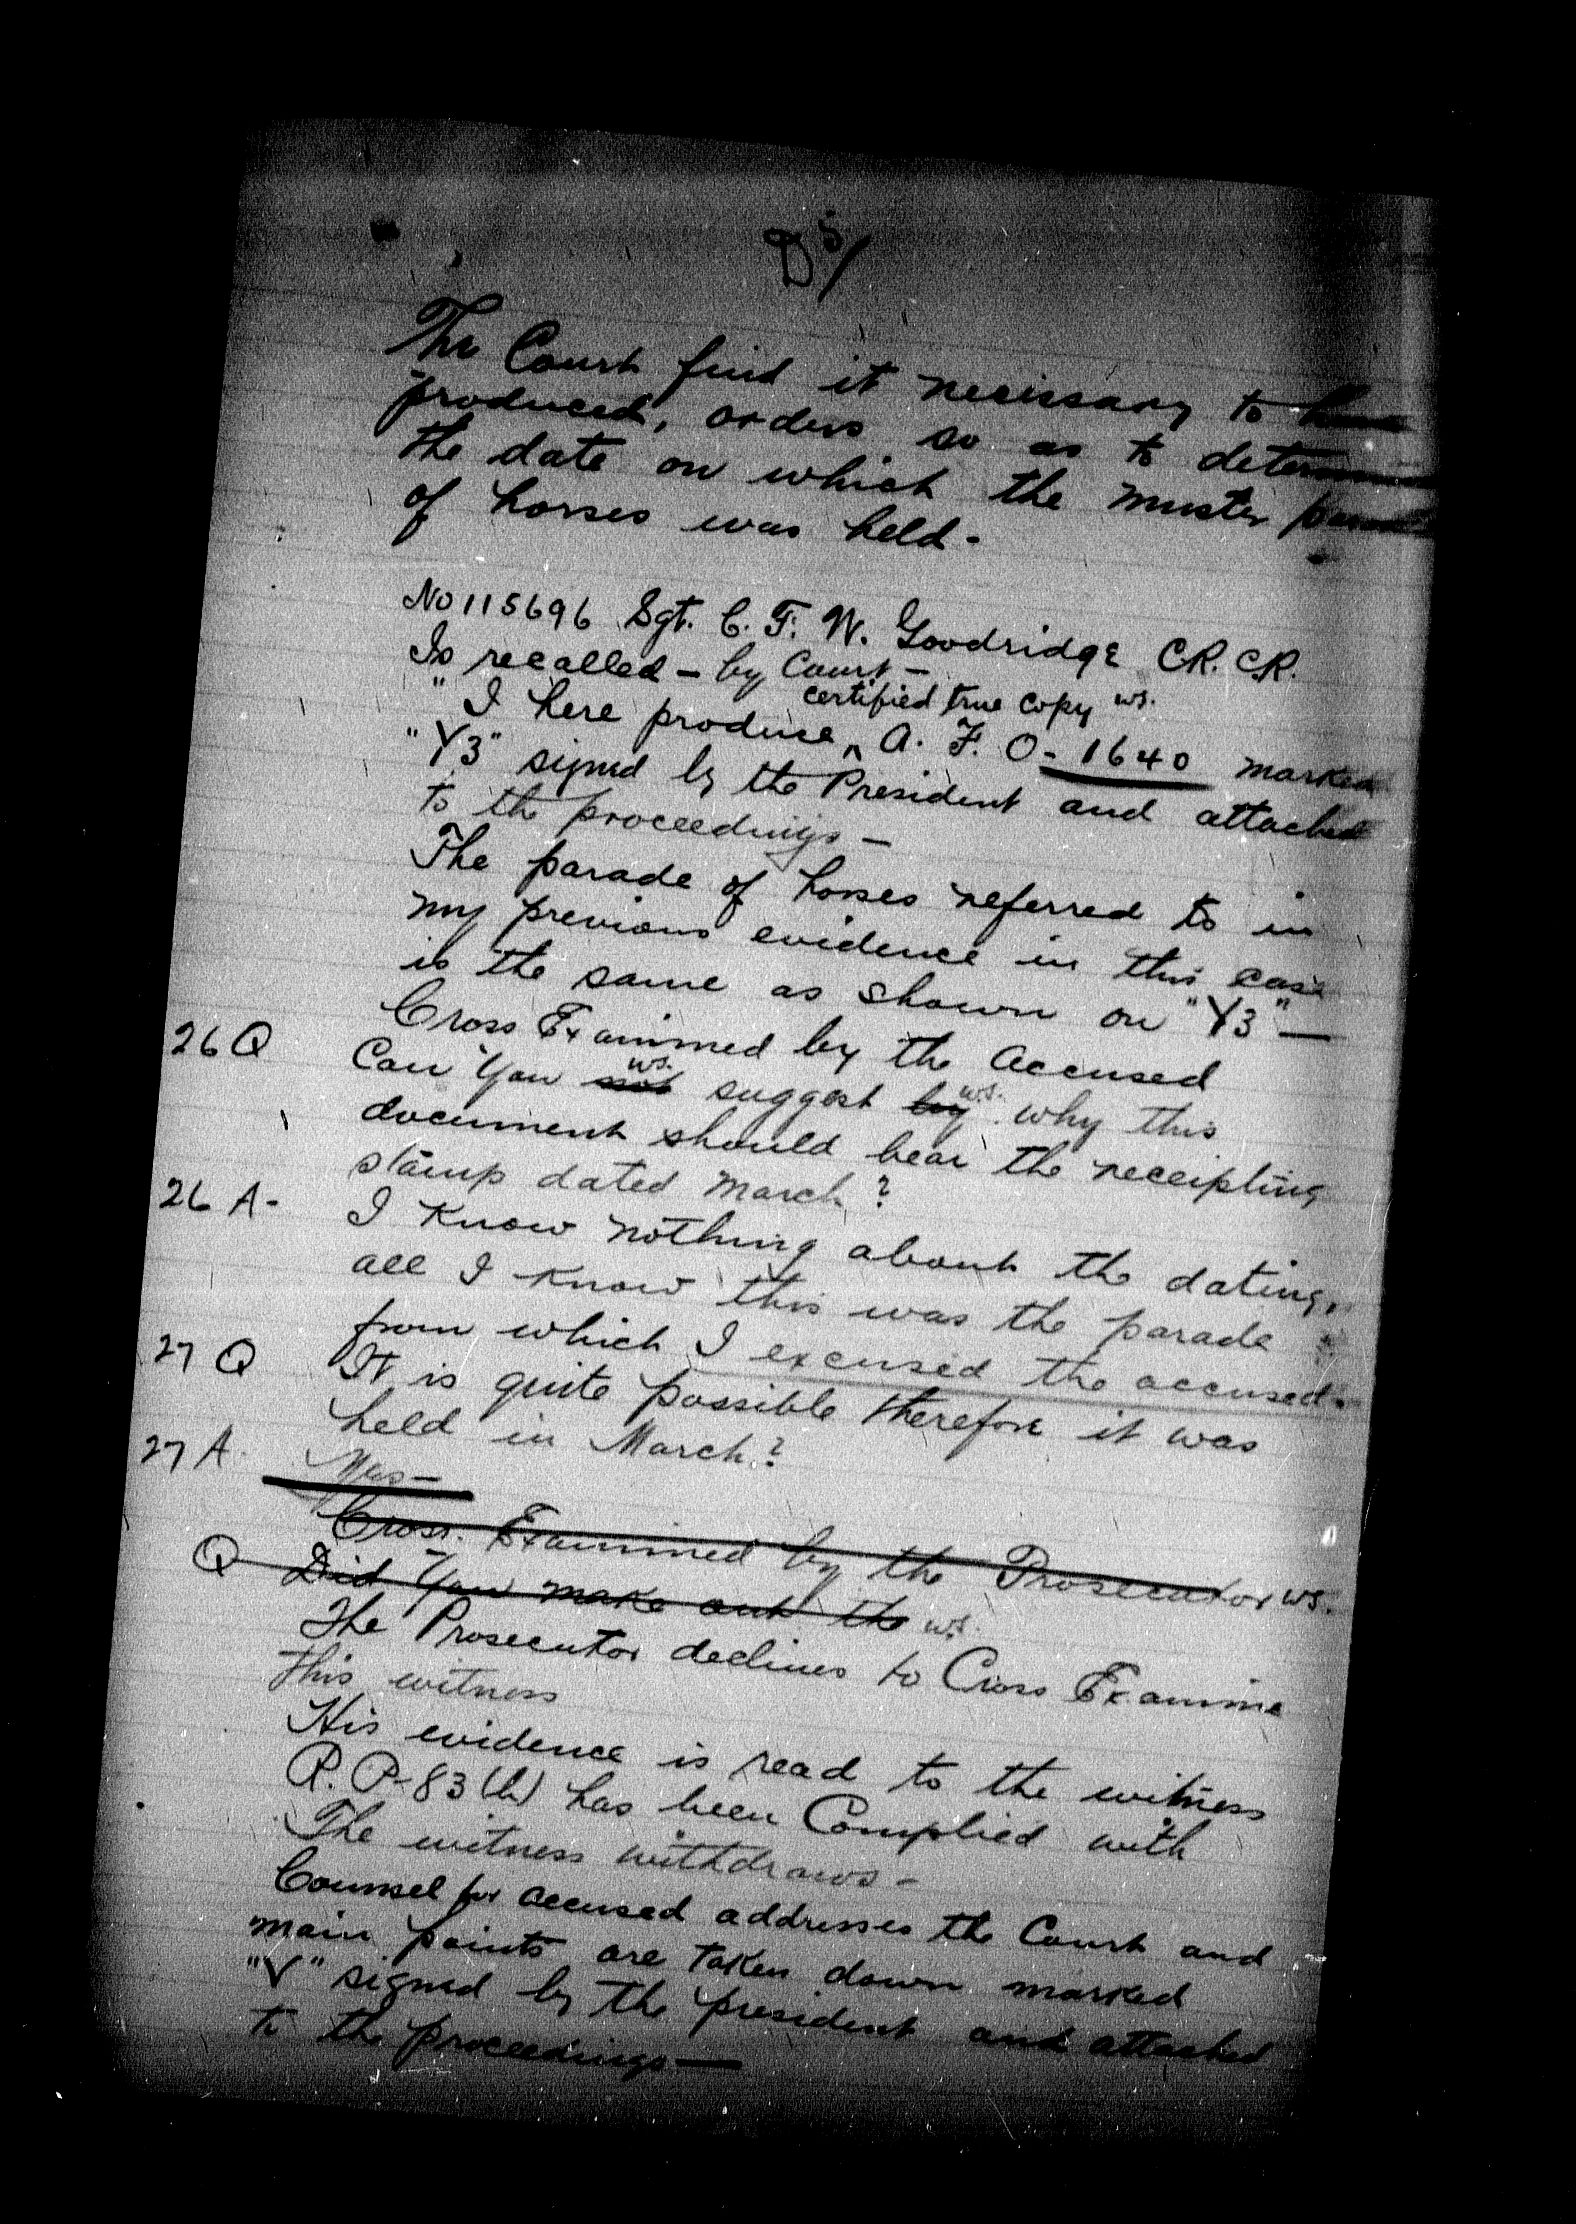 The Court find it necissary to have
produced, orders so as to determine
the date on which the muster parade
of horses was held -
No 115696 Sgt. C. F. W. Goodridge C.R. C.R.
Is recalled - by Court -
certified true copy ws.
" I here produce ^ A. F. O - 1640 marked
"Y3" signed by the President and attached
to the proceedings -
The parade of horses referred to in
my previous evidence in this case
is the same as shown on "Y3" -
Cross Examined by the accused
26 Q Can you not ws. suggest by ws. why this
document should bear the receipting
stamp dated March ?
26 A - I know nothing about the dating,
all I know this was the parade
from which I excused the accused.
27 Q It is quite possible therefore it was
held in March ?
27 A. Yes -
Cross. Examined by the Prosecutor ws.
Q Did you make out the ws.
The Prosecutor declines to Cross Examine
this witness
His evidence is read to the witness
R. P. 83 (b) has been Complied with
The witness withdraws -
Counsel for accused addresses the Court and
main points are taken down marked
"V" signed by the president and attached
to the proceedings -